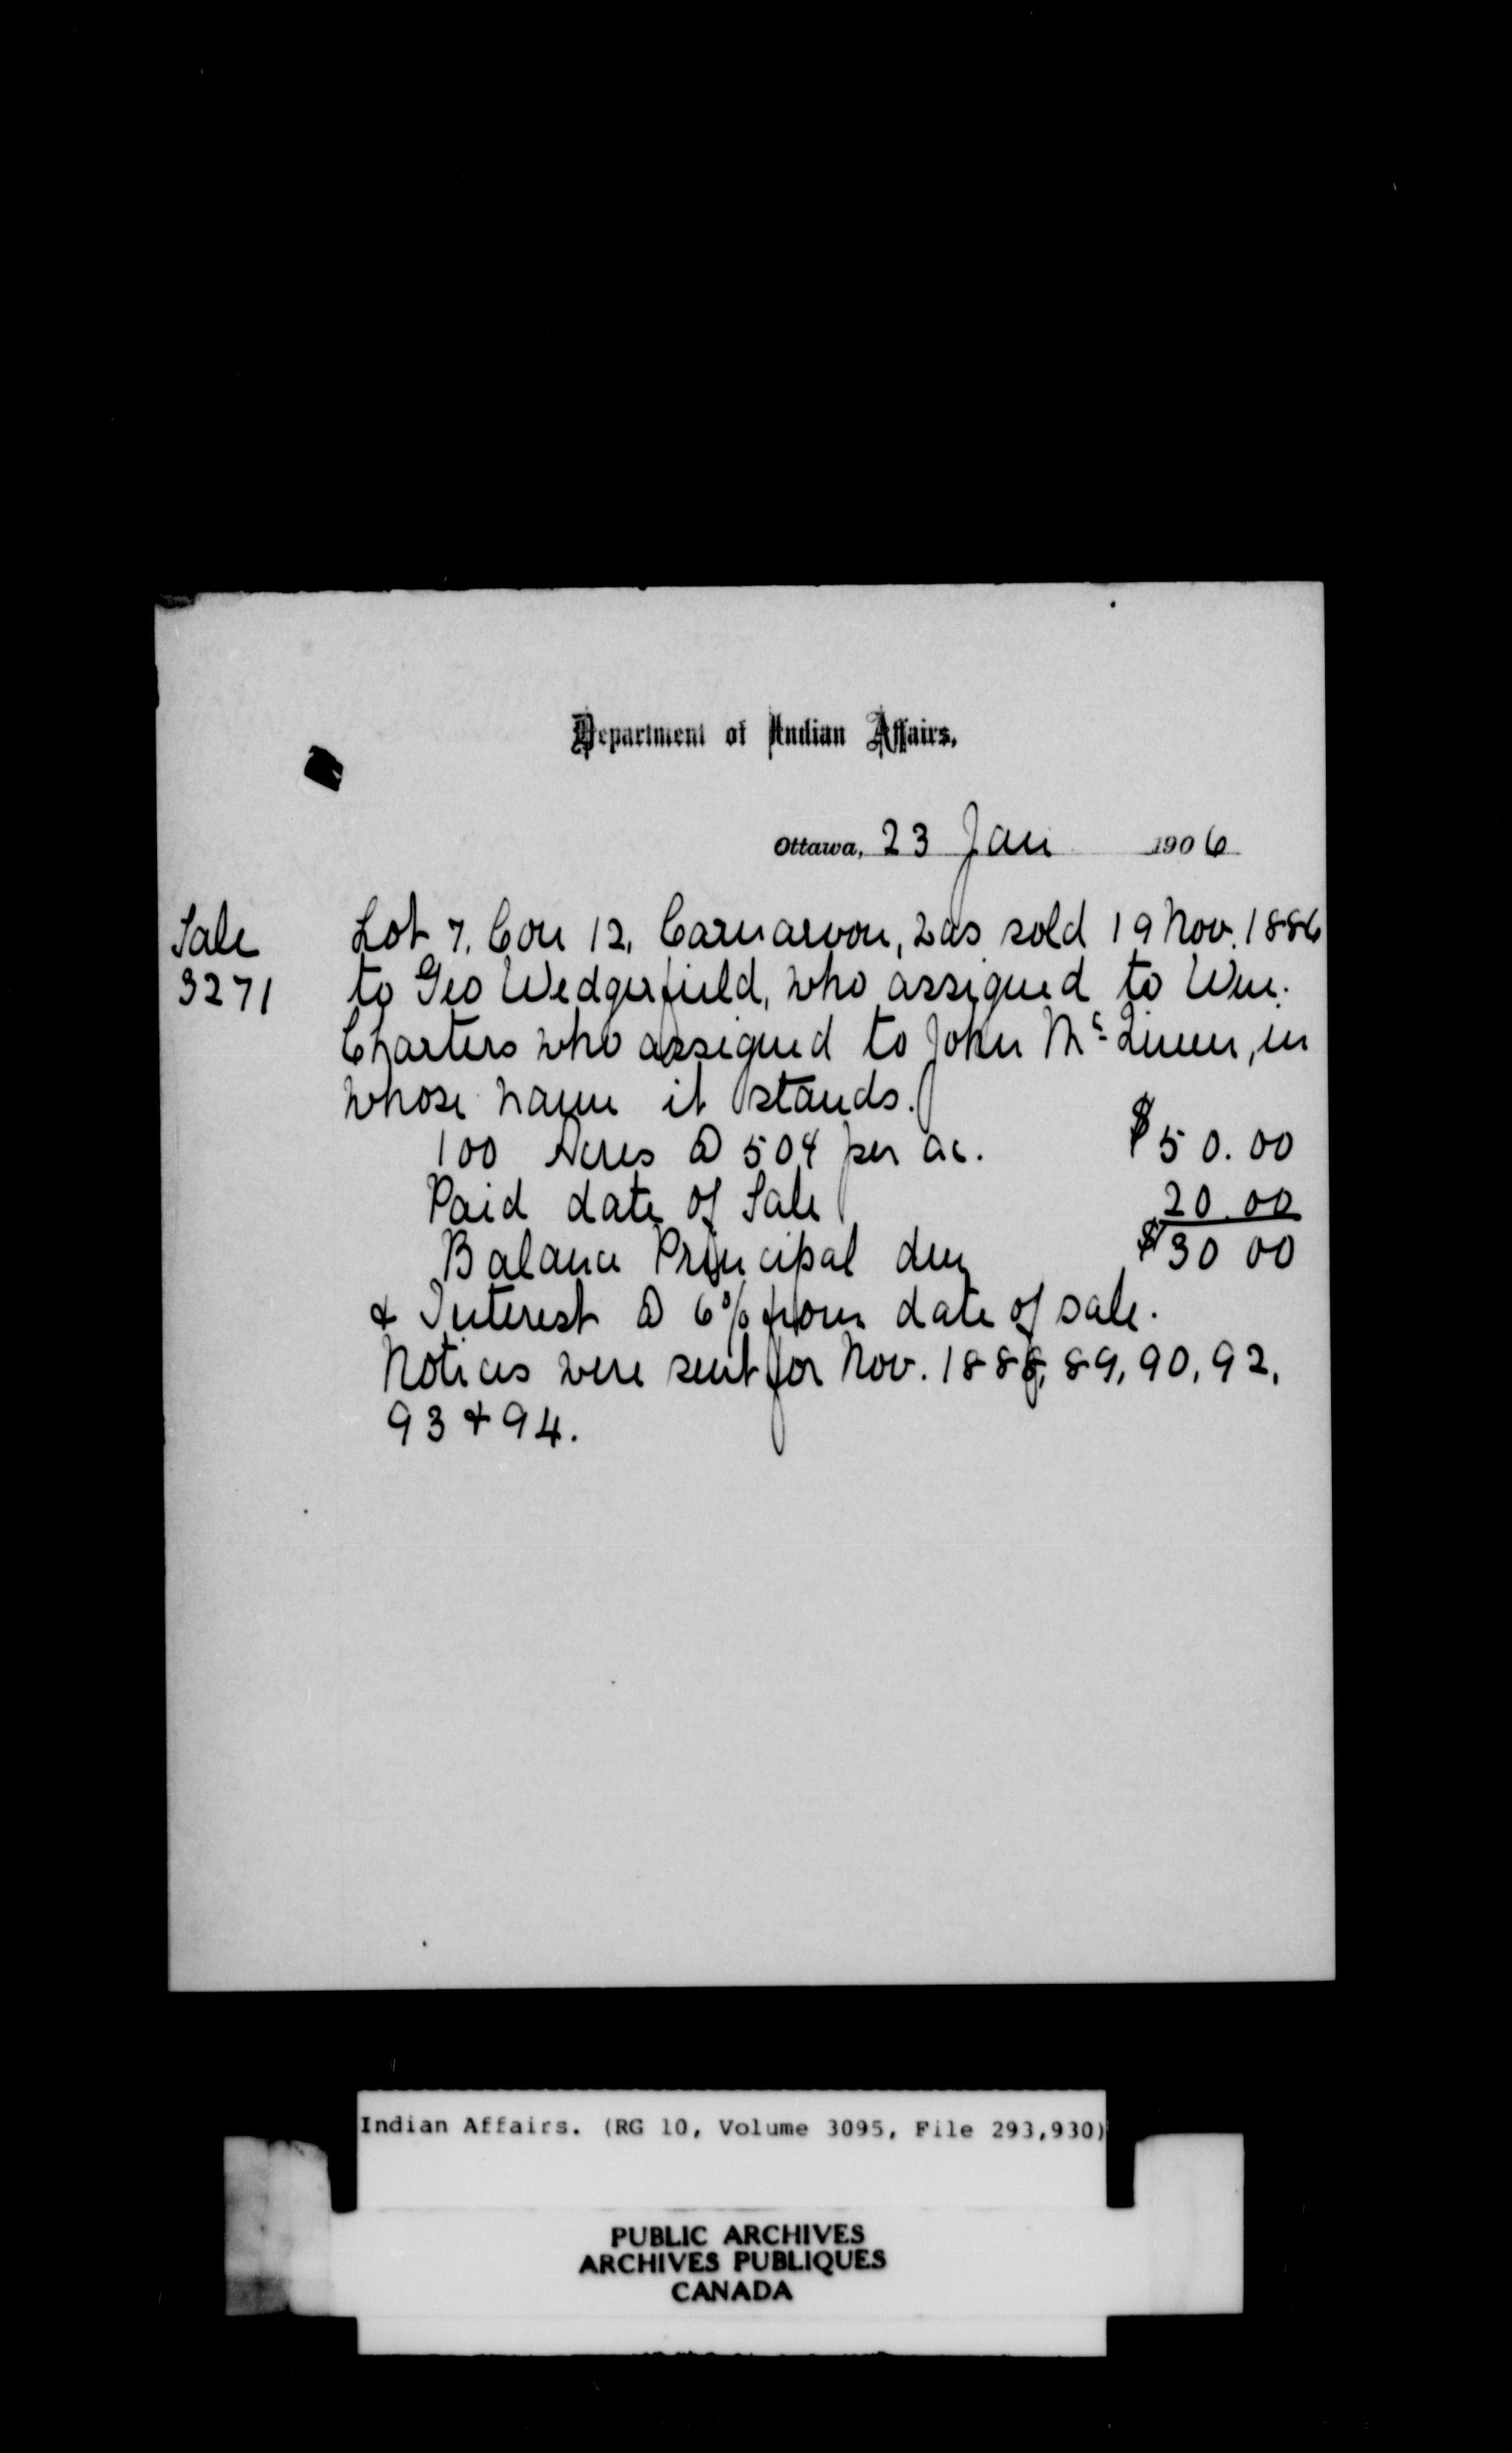 Department of Indian Affairs,
Ottawa, 23 Jan 1906
Sale
3271
Lot 7, Con 12, Carnarvon, was sold 19 Nov. 1886
to Geo Wedgerfield, who assigned to Wm.
Charters who assigned to John Mc, in
whose name it stands.
100 Acres @ 50¢ per ac. $50.00
Paid date of Sale 20.00
Balance Principal due $30 00
& Interest @ 6% from date of sale.
Notices were sent for Nov. 1888, 89, 90, 92,
93 & 94.
Indian Affairs. (RG 10, Volume 3095, File 293,930)
PUBLIC ARCHIVES
ARCHIVES PUBLIQUES
CANADA